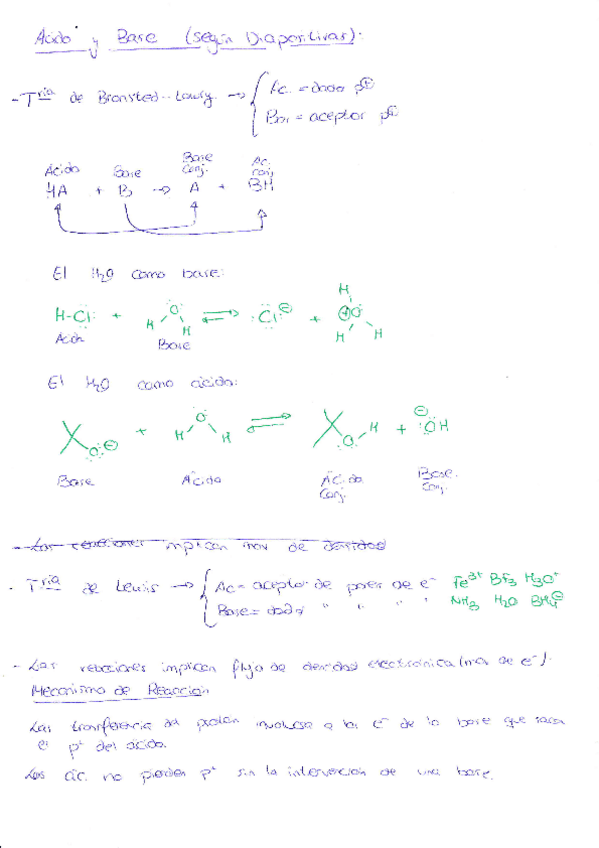 Ácido y Base (según Diapositivas):
- Tría de Bronsted-Lowry → { Ac. = dador p⊕
Base = aceptor p⊕
Ácido Base Base conj. Ac. conj
HA + B → A + BH
El H2O como base:
H-Cl + H O H ⇌ Cl⊖ + H O⊕ H H
Ácido Base
El H2O como ácido:
O⊖ + H O H ⇌ O H + ⊖OH
Base Ácido Ácido conj. Base conj.
- Las reacciones implican mov de densidad
- Tría de Lewis → { Ac = aceptor de pares de e- Fe3+ BF3 H3O+
Base = dador " " " " NH3 H2O BH4⊖
- Las reacciones implican flujo de densidad electrónica (mov de e-).
Mecanismo de Reacción
Las transferencia del protón involucra a los e- de la base que saca
el p+ del ácido.
Los ác. no pierden p+ sin la intervención de una base.